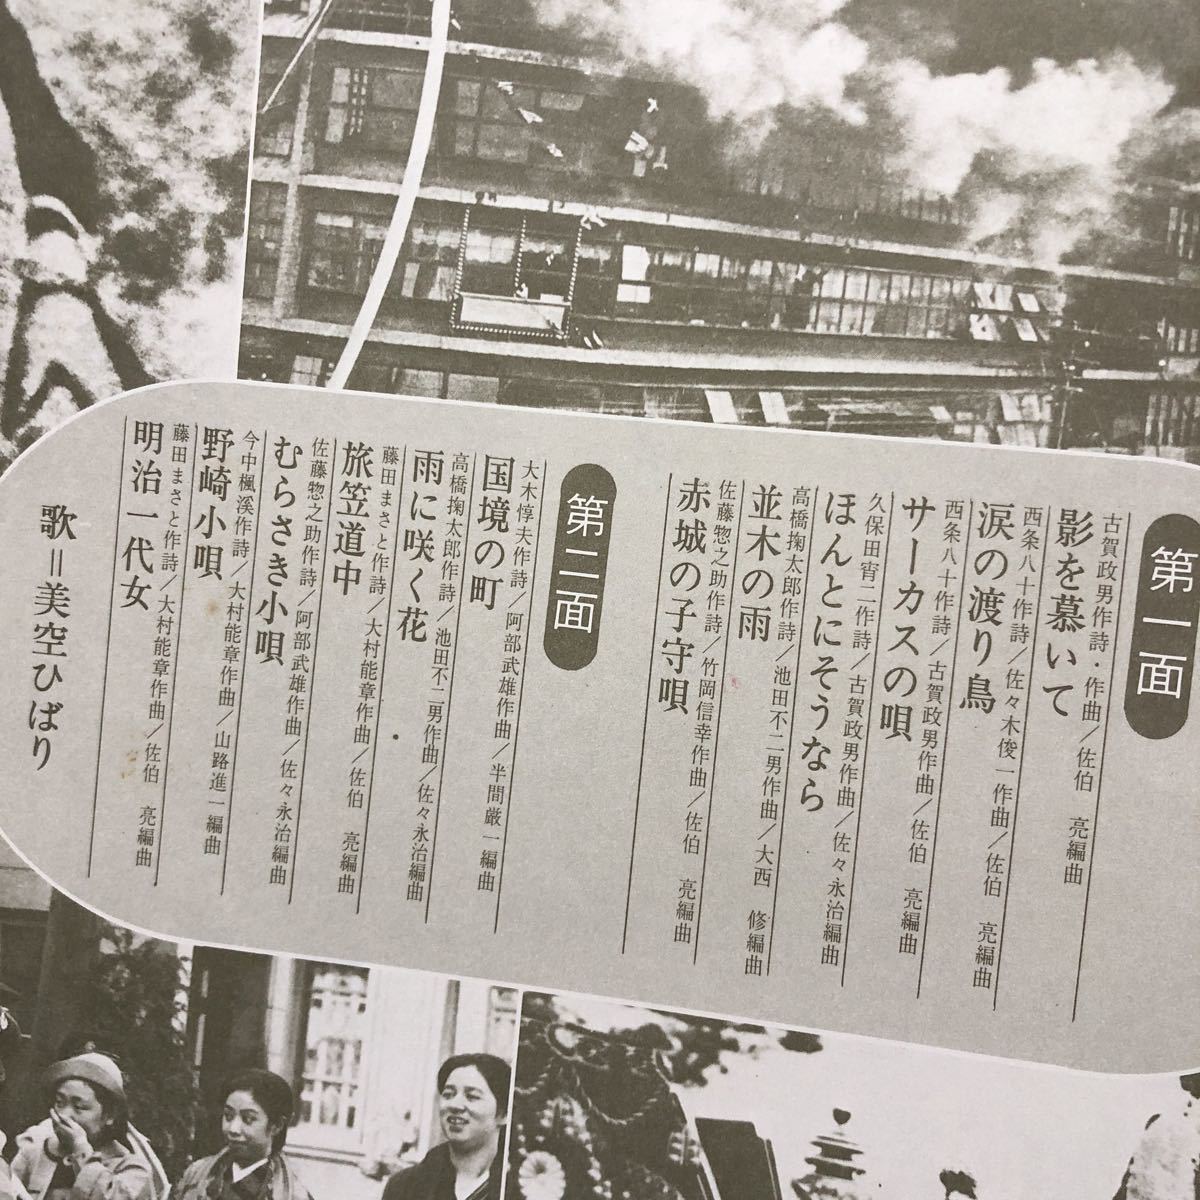 第一面
古賀政男作詩・作曲/佐伯 亮編曲
影を慕いて
西条八十作詩/佐々木俊一作曲/佐伯 亮編曲
涙の渡り鳥
西条八十作詩/古賀政男作曲/佐伯 亮編曲
サーカスの唄
久保田宵二作詩/古賀政男作曲/佐々永治編曲
ほんとにそうなら
高橋掬太郎作詩/池田不二男作曲/大西 修編曲
並木の雨
佐藤惣之助作詩/竹岡信幸作曲/佐伯 亮編曲
赤城の子守唄
第二面
大木惇夫作詩/阿部武雄作曲/半間厳一編曲
国境の町
高橋掬太郎作詩/池田不二男作曲/佐々永治編曲
雨に咲く花
藤田まさと作詩/大村能章作曲/佐伯 亮編曲
旅笠道中
佐藤惣之助作詩/阿部武雄作曲/佐々永治編曲
むらさき小唄
今中楓渓作詩/大村能章作曲/山路進一編曲
野崎小唄
藤田まさと作詩/大村能章作曲/佐伯 亮編曲
明治一代女
歌=美空ひばり